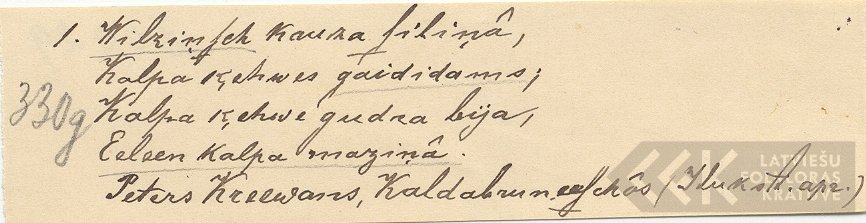 1. Wilziņsch kauza siliņâ,
Kalpa ķehwes gaididams;
330g
Kalpa ķehwe gudra bija,
Eeleen kalpa maziņâ.
Peters Kreewans, Kaldabrun eeschôs (Ilukst. apr.)
LATVIEŠU
FOLKLORAS
KRĀTUVE